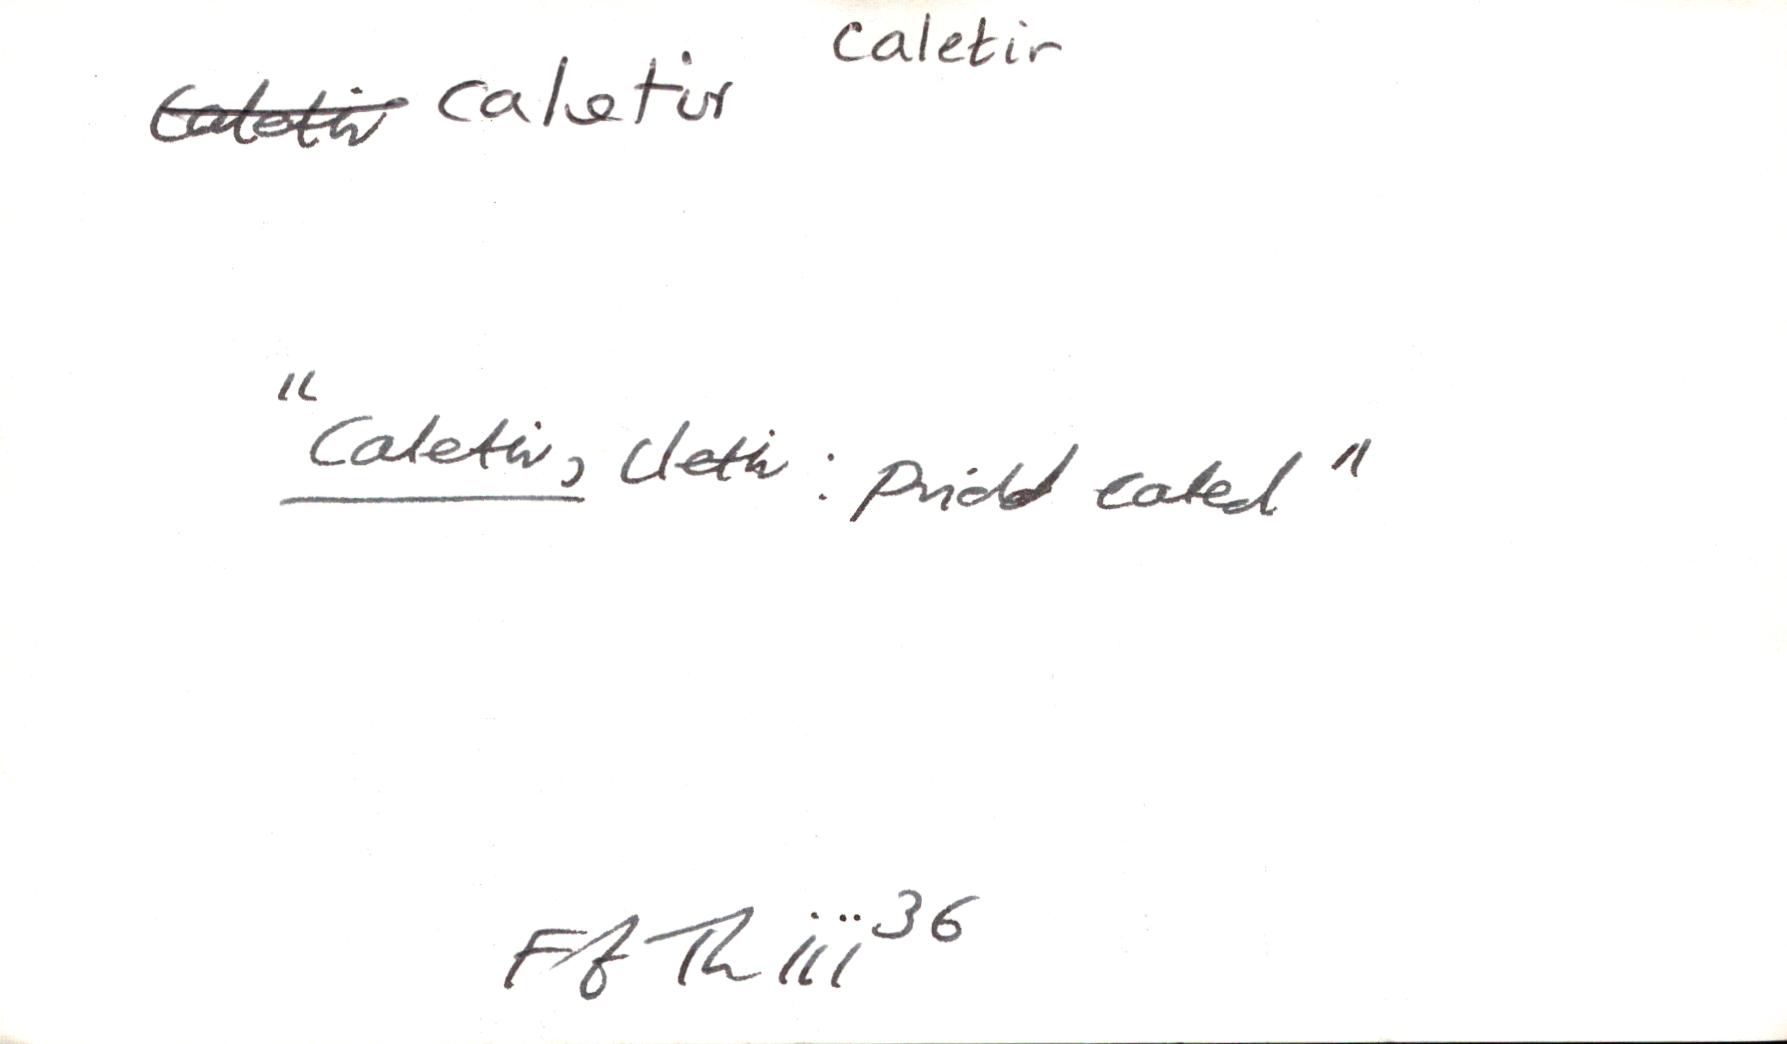 Caletir
~~Caletir~~ caletir
"Caletir, cletir: Pridd caled"
Ff Th iii 36